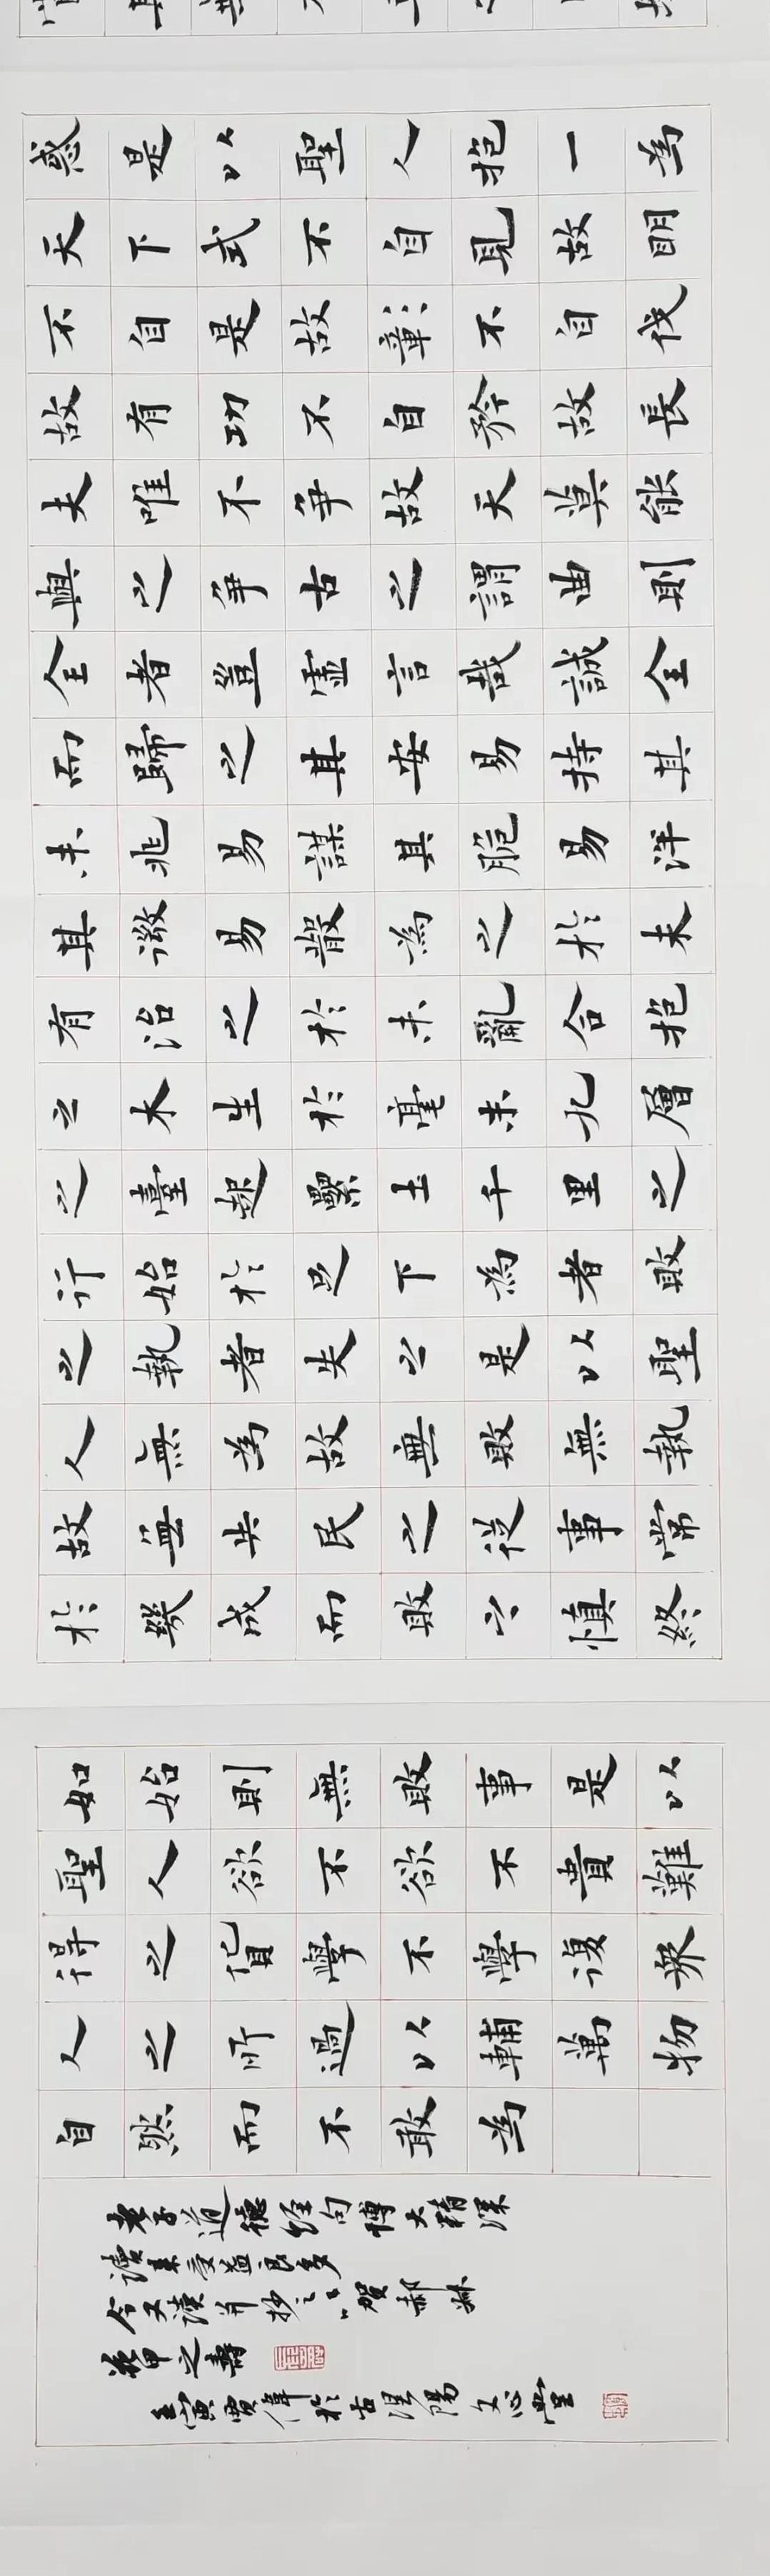 惑是以聖人抱一為
天下式不自見故明
不自是故彰不自伐
故有功不自矜故長
夫唯不爭故天莫能
與之爭古之謂曲則
全者豈虛言哉誠全
而歸之其安易持其
未兆易謀其脆易泮
其微易散為之於未
有治之於未亂合抱
之木生於毫末九層
之臺起累土千里之
行始於足下為者敗
之執者失之是以聖
人無為故無敗無執
故無失民之從事常
於幾成而敗之慎終
如始則無敗事是以
聖人欲不欲不貴難
得之貨學不學復眾
人之所過以輔萬物
自然而不敢為
老子道德經句博大精深
讀來受益良多
今又讀并抄之以賀郝妹
花甲之壽
壬寅偉於古涅陽文心堂